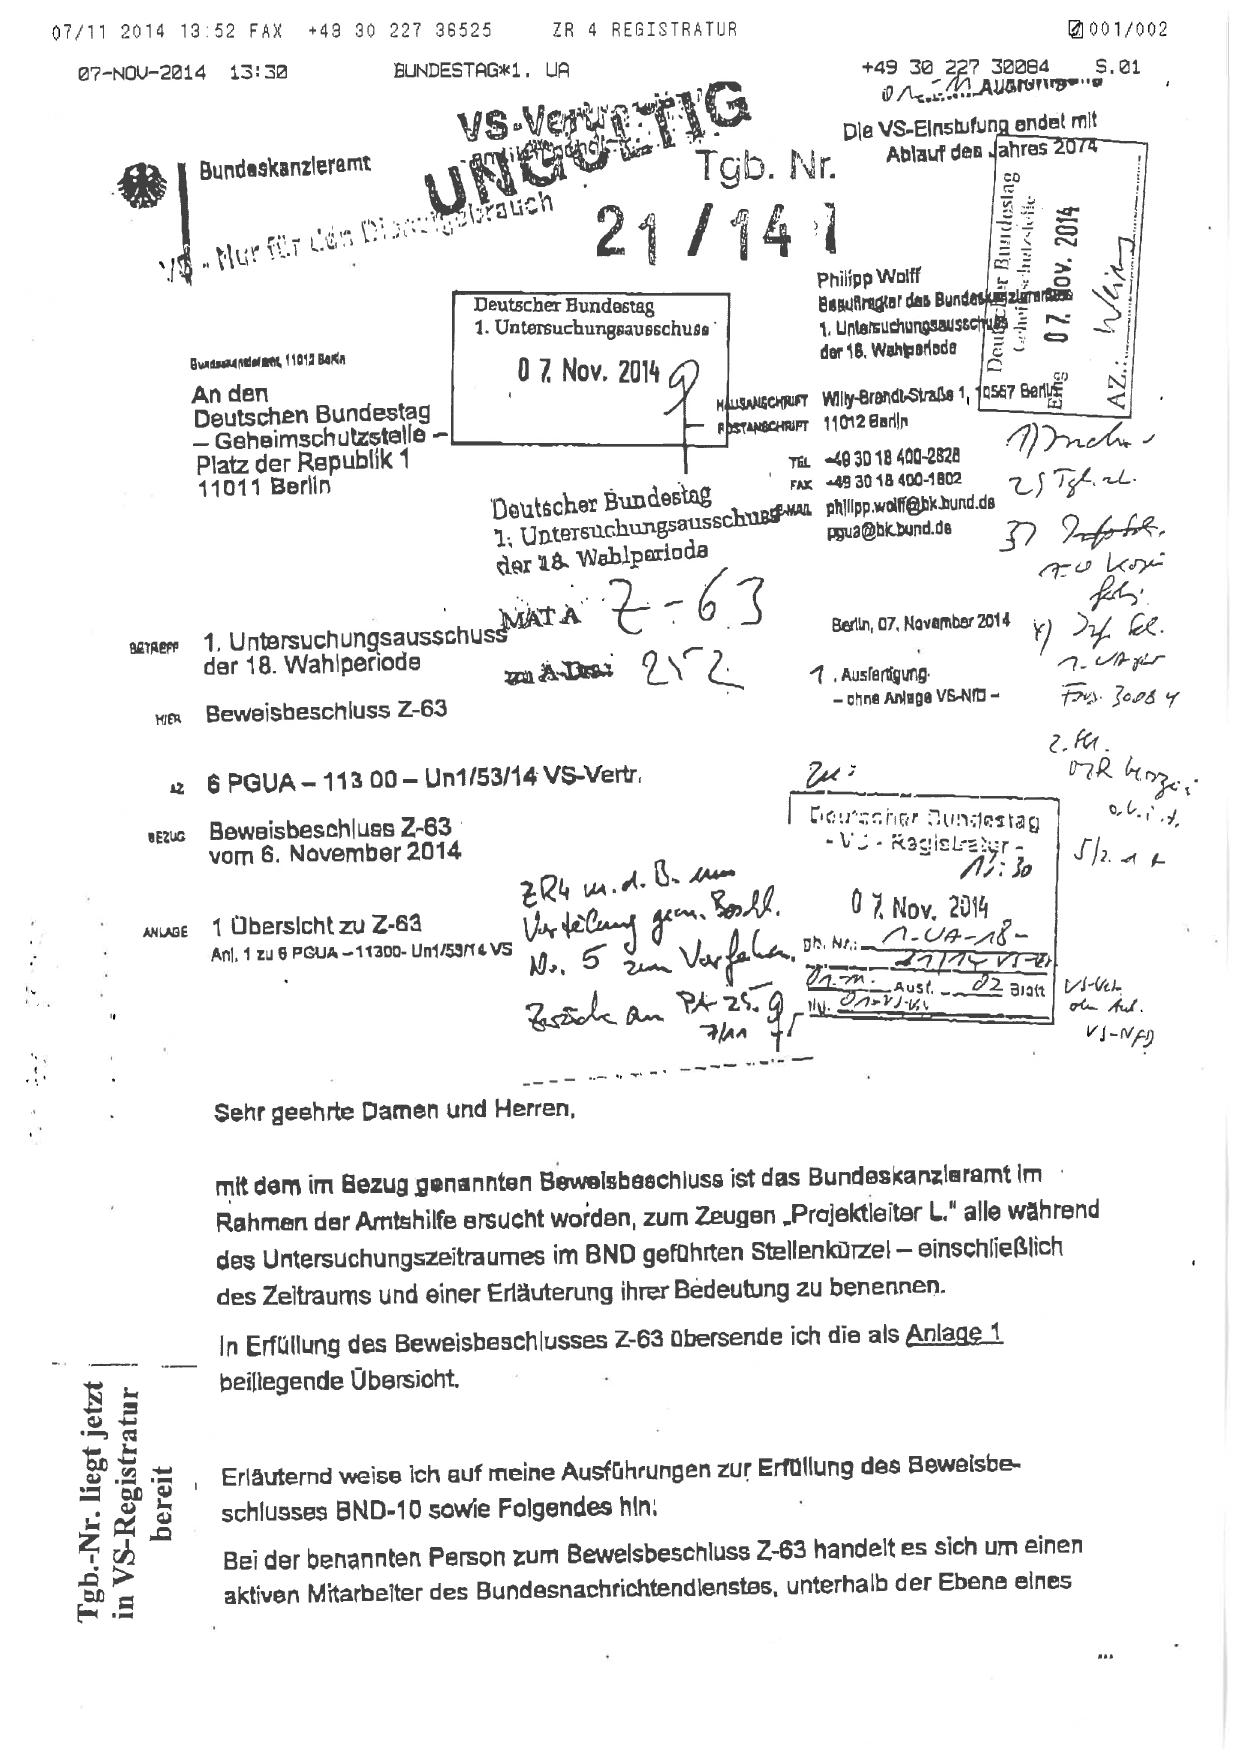 07/11 2014 13:52 FAX +49 30 227 36525 ZR 4 REGISTRATUR 001/002
07-NOV-2014 13:30 BUNDESTAG*1. UA +49 30 227 30084 S.01
VS-Vertr
UNGÜLTIG
VS - Nur für den Dienstgebrauch
Bundeskanzleramt
Tgb. Nr.
21/14
Die VS-Einstufung endet mit
Ablauf des Jahres 2074
Deutscher Bundestag
Geheimschutzstelle
07. Nov. 2014
AZ.:
Philipp Wolff
Beauftragter des Bundeskanzleramtes
1. Untersuchungsausschuss
der 18. Wahlperiode
Deutscher Bundestag
1. Untersuchungsausschuss
07. Nov. 2014
Bundeskanzleramt, 11012 Berlin
An den
Deutschen Bundestag
– Geheimschutzstelle –
Platz der Republik 1
11011 Berlin
HAUSANSCHRIFT Willy-Brandt-Straße 1, 10557 Berlin
POSTANSCHRIFT 11012 Berlin
TEL +49 30 18 400-2628
FAX +49 30 18 400-1802
E-MAIL philipp.wolff@bk.bund.de
pgua@bk.bund.de
Deutscher Bundestag
1. Untersuchungsausschuss
der 18. Wahlperiode
MAT A Z-63
zu A-Drs.: 252
Berlin, 07. November 2014
BETREFF 1. Untersuchungsausschuss
der 18. Wahlperiode
1. Ausfertigung
– ohne Anlage VS-NfD –
HIER Beweisbeschluss Z-63
AZ 6 PGUA – 113 00 – Un1/53/14 VS-Vertr.
BEZUG Beweisbeschluss Z-63
vom 6. November 2014
ANLAGE 1 Übersicht zu Z-63
Anl. 1 zu 6 PGUA –11300- Un1/53/14 VS
Deutscher Bundestag
- VS - Registratur -
13:30
07. Nov. 2014
1-UA-18-
21/14 VS-Vtr
Ausf. 02 Blatt
ZR4 m.d.B. um
Verteilung gem. Beschl.
Nr. 5 zum Verfahren.
Zurück an PA 25.
7/11
VS-NfD
Sehr geehrte Damen und Herren,
mit dem im Bezug genannten Beweisbeschluss ist das Bundeskanzleramt im
Rahmen der Amtshilfe ersucht worden, zum Zeugen „Projektleiter L.“ alle während
des Untersuchungszeitraumes im BND geführten Stellenkürzel – einschließlich
des Zeitraums und einer Erläuterung ihrer Bedeutung zu benennen.
In Erfüllung des Beweisbeschlusses Z-63 übersende ich die als Anlage 1
beiliegende Übersicht.
Erläuternd weise ich auf meine Ausführungen zur Erfüllung des Beweisbe-
schlusses BND-10 sowie Folgendes hin:
Bei der benannten Person zum Beweisbeschluss Z-63 handelt es sich um einen
aktiven Mitarbeiter des Bundesnachrichtendienstes, unterhalb der Ebene eines
...
Tgb.-Nr. liegt jetzt
in VS-Registratur
bereit